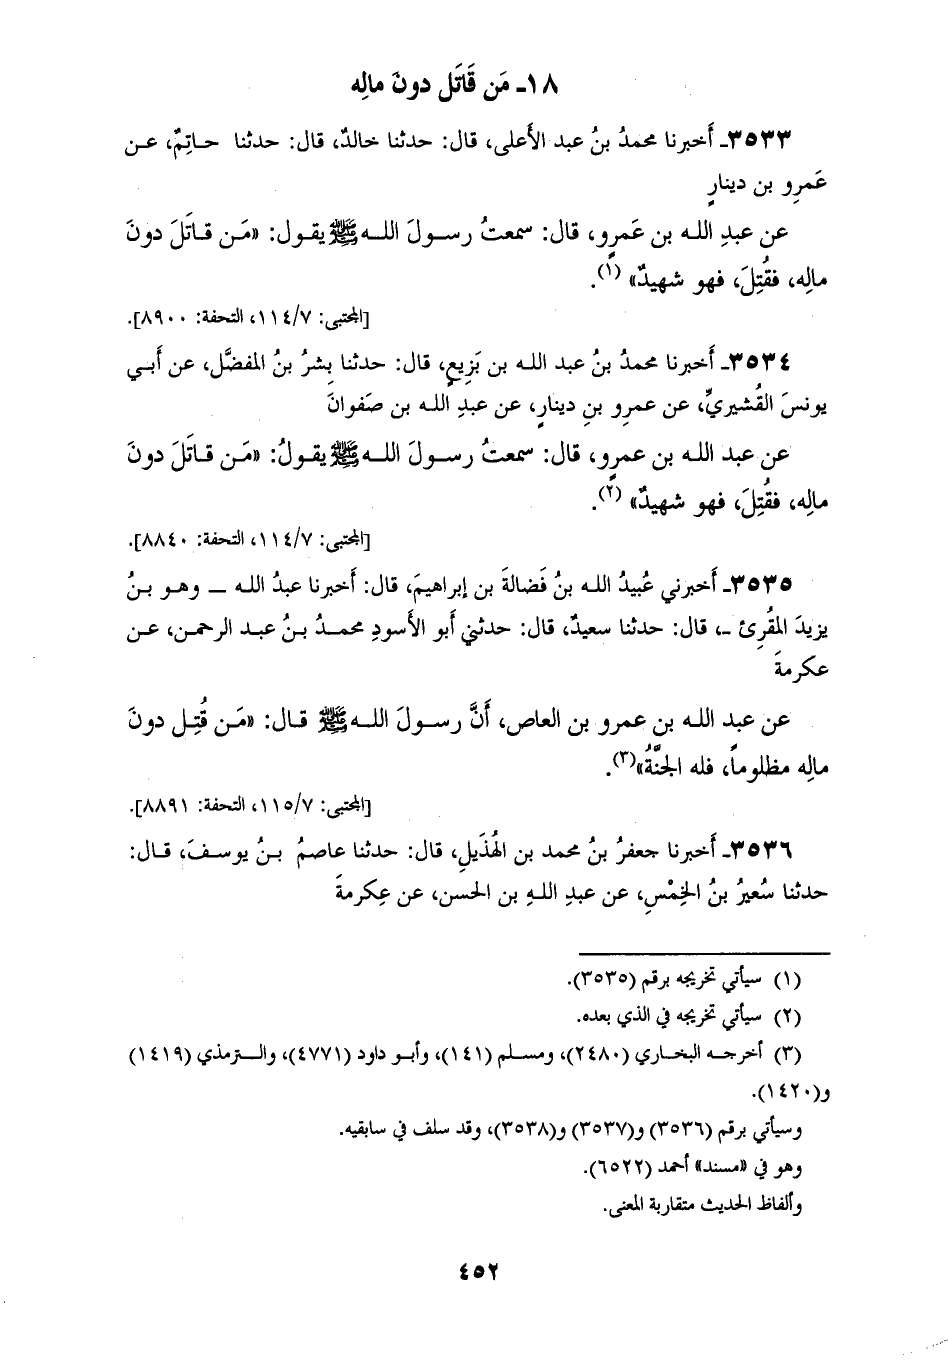 ١٨ـ مَن قَاتَل دونَ مالِه
٣٥٣٣ـ أَخبرنا محمدُ بنُ عبد الأَعلى، قال: حدثنا خالدٌ، قال: حدثنا حـاتِمٌ، عـن
عَمرِو بن دينارٍ
عن عبدِ اللـه بن عَمرٍو، قال: سمعتُ رسـولَ اللـه ﷺ يقول: «مَـن قـاتَلَ دونَ
مالِه، فقُتِلَ، فهو شهيدٌ» (١).
[المجتبى: ١١٤/٧، التحفة: ٨٩٠٠].
٣٥٣٤ـ أَخبرنا محمدُ بنُ عبد اللـه بن بَزِيعٍ، قال: حدثنا بِشرُ بنُ المفضَّل، عن أَبـي
يونسَ القُشيريِّ، عن عمرِو بنِ دينارٍ، عن عبدِ اللـه بن صَفوانَ
عن عبد اللـه بن عمرٍو، قال: سمعتُ رسـولَ اللـه ﷺ يقولُ: «مَـن قـاتَلَ دونَ
مالِه، فقُتِلَ، فهو شهيدٌ» (٢).
[المجتبى: ١١٤/٧، التحفة: ٨٨٤٠].
٣٥٣٥ـ أَخبرني عُبيدُ اللـه بنُ فَضالةَ بن إبراهيمَ، قال: أَخبرنا عبدُ اللـه ــ وهـو بـنُ
يزيدَ المُقرِئ ـ، قال: حدثنا سعيدٌ، قال: حدثني أَبو الأَسودِ محمـدُ بـنُ عبـد الرحمـن، عـن
عكرمةَ
عن عبد اللـه بن عمرو بن العاص، أَنَّ رسـولَ اللـه ﷺ قـال: «مَـن قُتِـل دونَ
مالِه مظلوماً، فله الجنَّةُ»(٣).
[المجتبى: ١١٥/٧، التحفة: ٨٨٩١].
٣٥٣٦ـ أَخبرنا جعفرُ بنُ محمد بن الهُذَيلِ، قال: حدثنا عاصمُ بـنُ يوسـفَ، قـال:
حدثنا سُعيرُ بنُ الخِمْسِ، عن عبدِ اللهِ بن الحسن، عن عِكرمةَ
(١) سيأتي تخريجه برقم (٣٥٣٥).
(٢) سيأتي تخريجه في الذي بعده.
(٣) أخرجـه البخـاري (٢٤٨٠)، ومسـلم (١٤١)، وأبـو داود (٤٧٧١)، والـترمذي (١٤١٩)
و(١٤٢٠).
وسيأتي برقم (٣٥٣٦) و(٣٥٣٧) و(٣٥٣٨)، وقد سلف في سابقيه.
وهو في «مسند» أحمد (٦٥٢٢).
وألفاظ الحديث متقاربة المعنى.
٤٥٢